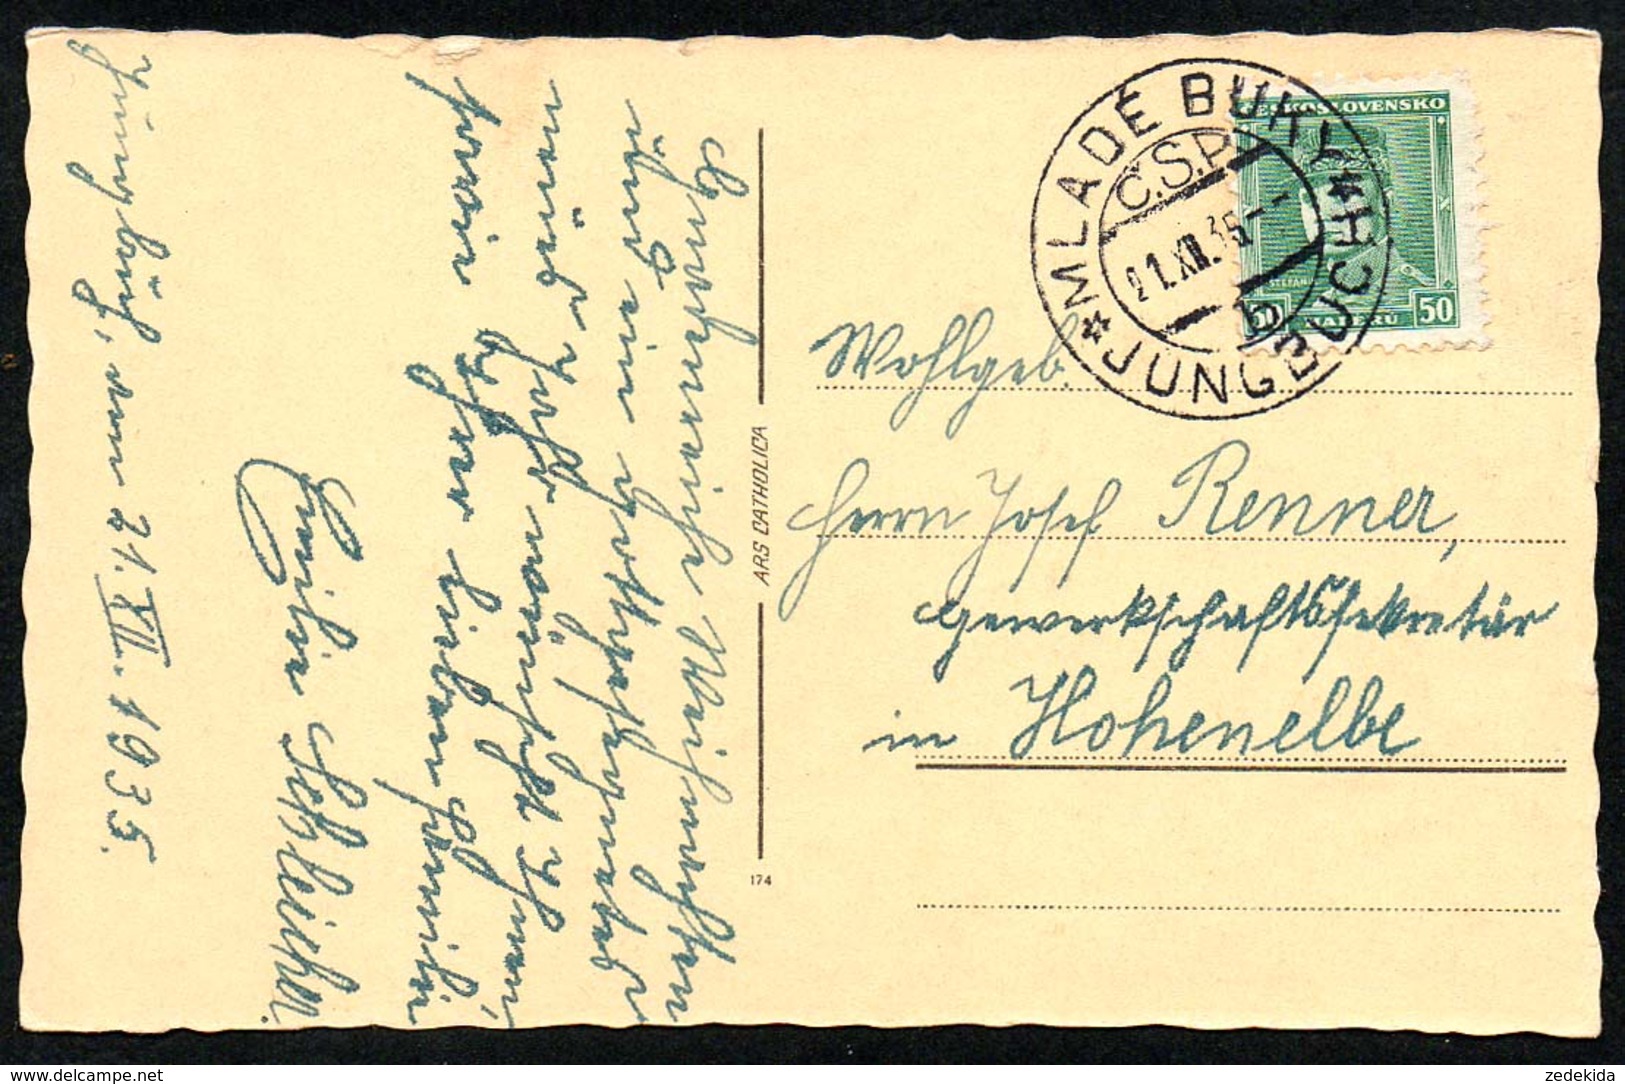 Gnadenreiche Weihnachten
und ein gottgesegnetes
neues Jahr wünscht Ihnen,
sowie Ihrer lieben Familie
Emilie Schleicher.
Jungbuch, am 21. XII. 1935.
ARS CATHOLICA
174
* MLADÉ BUKY *
JUNGBUCH
Č.S.P.
21.XII.35
ČESKOSLOVENSKO
50 HALEŘŮ 50
Wohlgeb.
Herrn Josef Renner,
Gewerkschaftssekretär
in Hohenelbe
zedekida